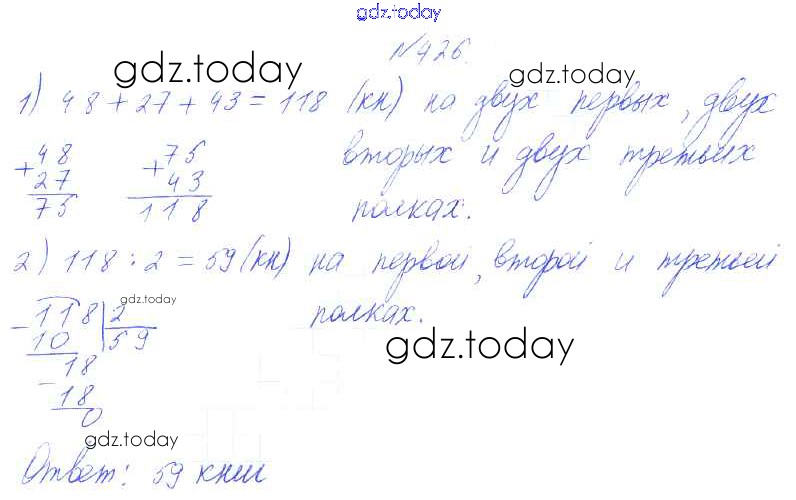 gdz.today
№426.
gdz.today gdz.today
1) 48 + 27 + 43 = 118 (кн) на двух первых, двух
вторых и двух третьих
полках.
+ 48 + 75
27 43
75 118
2) 118 : 2 = 59 (кн) на первой, второй и третьей
полках.
gdz.today
- 118 | 2
10 59
gdz.today
18
- 18
0
gdz.today
Ответ: 59 книг